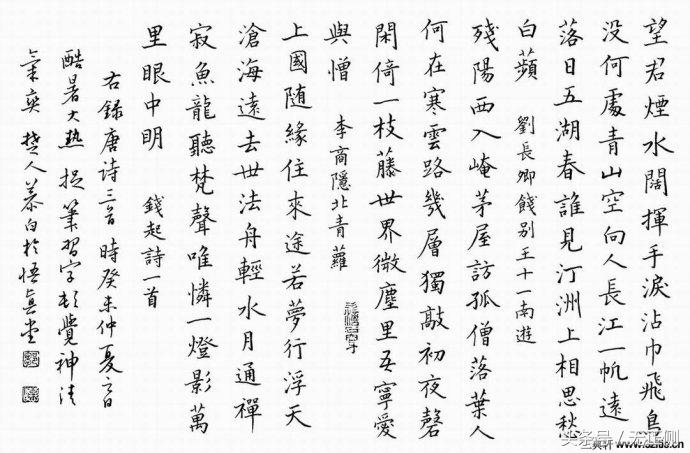 望君煙水闊揮手淚沾巾飛鳥
没何處青山空向人長江一帆遠
落日五湖春誰見汀洲上相思愁
白蘋 劉長卿餞别王十一南遊
殘陽西入崦茅屋訪孤僧落葉人
何在寒雲路幾層獨敲初夜磬
閑倚一枝藤世界微塵里吾寧愛
與憎 李商隱北青蘿
上國随緣住來途若夢行浮天
滄海遠去世法舟輕水月通禪
寂魚龍聽梵聲唯憐一燈影萬
里眼中明 錢起詩一首
右録唐诗三首時癸未仲夏日
酷暑大熱捉筆習字頓覺神清
氣爽楚人慕白於悟真堂
头条号 /